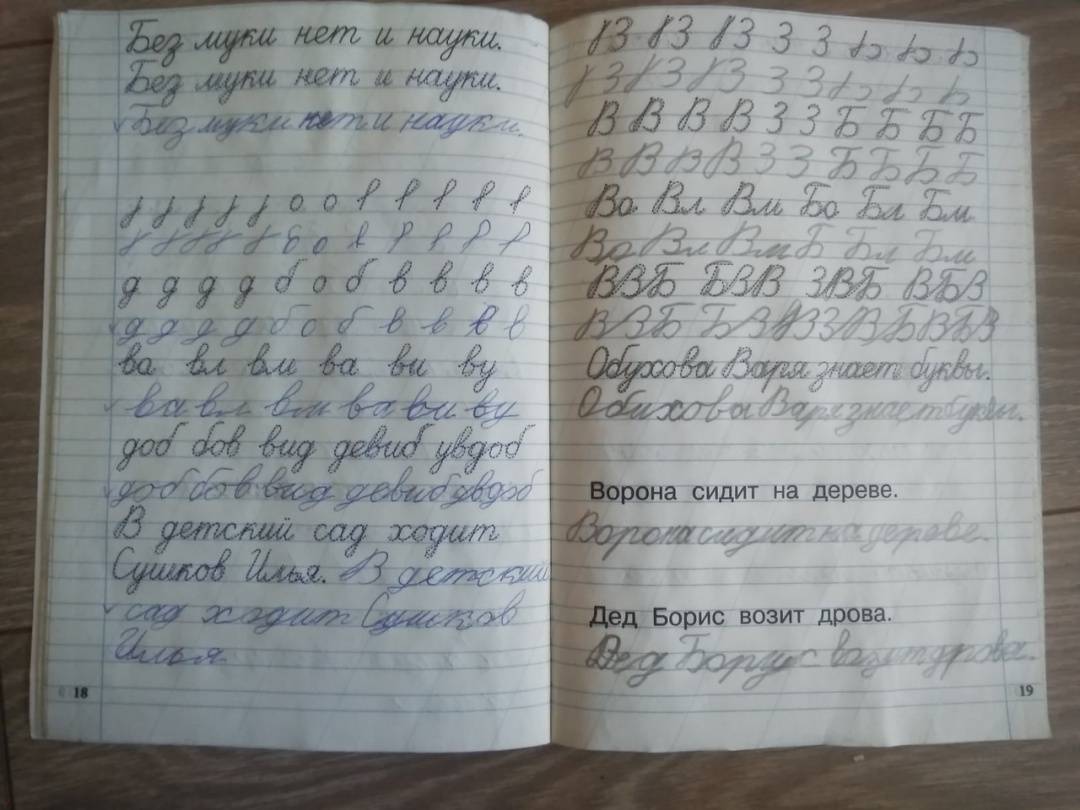 Без муки нет и науки.
Без муки нет и науки.
Без муки нет и науки.
д д д д б о б в в в в
д д д д б о б в в в в
ва вл вм ва ви ву
ва вл вм ва ви ву
доб бов вид девиб увдоб
доб бов вид девиб увдоб
В детский сад ходит
Сушков Илья. В детский
сад ходит Сушков
Илья
18
В В В В З З Б Б Б Б
В В В В З З Б Б Б Б
Во Вл Вм Бо Бл Бм
Во Вл Вм Б Бл Бм
ВЗБ БЗВ ЗВБ ВБЗ
Обухова Варя знает буквы.
Обихова Варя знает буквы.
Ворона сидит на дереве.
Ворона сидит на дереве.
Дед Борис возит дрова.
Дед Борис возит дрова.
19